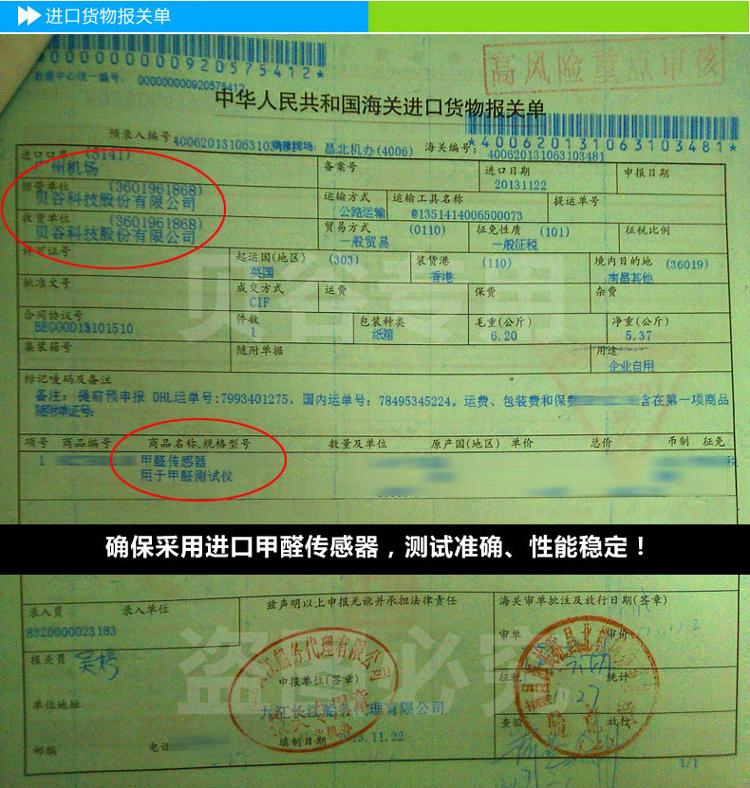 进口货物报关单
*000000000920575412*
数据中心统一编号: 000000000920575412
高风险重点审核
中华人民共和国海关进口货物报关单
*400620131063103481*
预录入编号 昌北机办(4006) 海关编号: 400620131063103481
进口口岸 (5141) 备案号 进口日期 申报日期
广州机场 20131122
报管单位 (3601961868) 运输方式 运输工具名称 提运单号
贝谷科技股份有限公司 公路运输 @1351414006500073
收货单位 (3601961868) 贸易方式 (0110) 征免性质 (101) 征税比例
贝谷科技股份有限公司 一般贸易 一般征税
许可证号 起运国(地区) (303) 装货港 (110) 境内目的地 (36019)
英国 香港 南昌其他
批准文号 成交方式 运费 保费 杂费
CIF
合同协议号 件数 包装种类 毛重(公斤) 净重(公斤)
BEGOOD13101510 1 纸箱 6.20 5.37
集装箱号 随附单据 用途
企业自用
标记唛码及备注
备注: 提前预申报 DHL运单号:7993401275, 国内运单号: 78495345224, 运费、包装费和保费 含在第一项商品
随附单证号:
项号 商品编号 商品名称、规格型号 数量及单位 原产国(地区) 单价 总价 币制 征免
1 甲醛传感器
用于甲醛测试仪
贝谷专用
确保采用进口甲醛传感器，测试准确、性能稳定！
录入员 录入单位 兹声明以上申报无讹并承担法律责任 海关审单批注及放行日期(签章)
8320000023183 审单 审价
报关员 申报单位(签章) 征税 统计
单位地址 九江长江船务代理有限公司
查验 放行
邮编 电话 填制日期 13.11.22
盗图必究
1/1